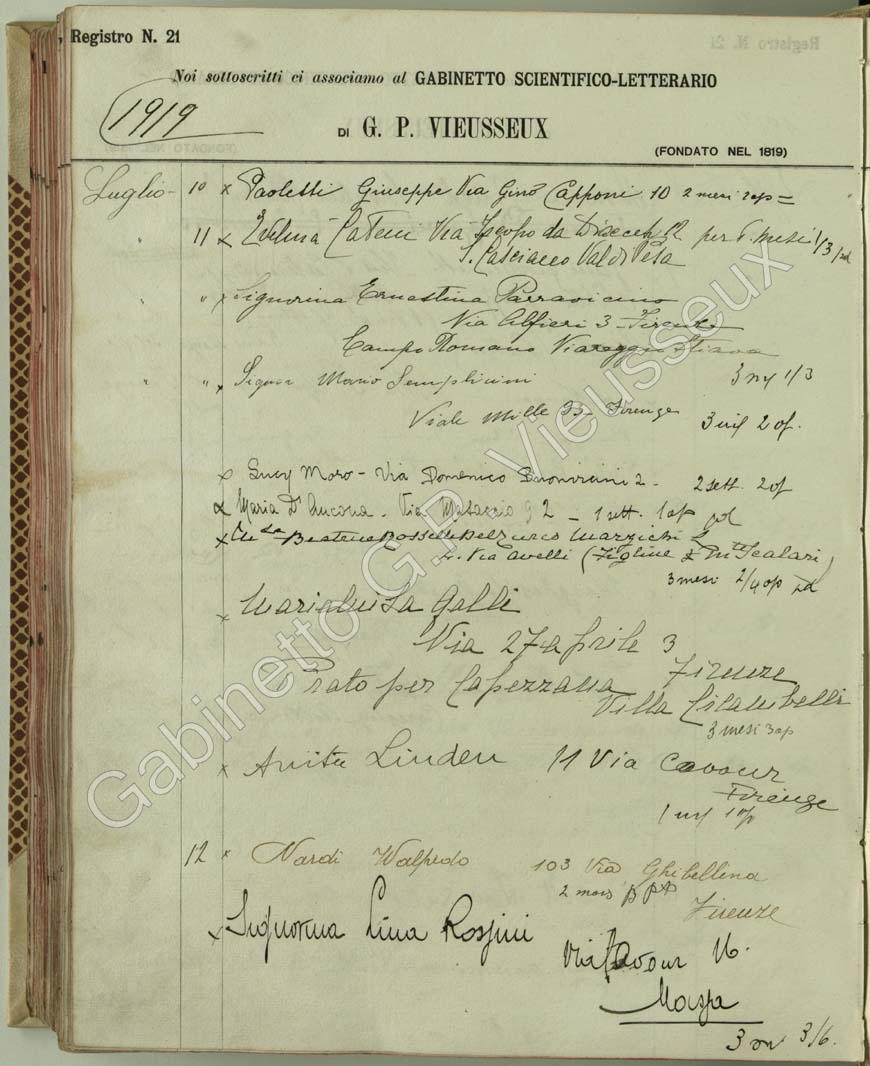 Registro N. 21
Noi sottoscritti ci associamo al GABINETTO SCIENTIFICO-LETTERARIO
1919
DI G. P. VIEUSSEUX
(FONDATO NEL 1819)
Luglio - 10 x Paoletti Giuseppe Via Gino Capponi 10 2 mesi 2 op =
" 11 x Via Jacopo da per mesi 1/3
S. Casciano Val di Pesa
" " x Signorina Ernestina Parravicino
Via Alfieri 3 - Firenze
Campo Romano Viareggio Stiava
" " x Signor Mario Semplicini 3 1/3
Viale Mille Firenze 3 2 op.
x Lucy Moro - Via Domenico Buonvicini 2 - 2 sett. 2 op
x Maria D'Ancona - Via Masaccio 92 - 1 sett. 1 op
x Beatrice Rosselli Del Turco
Via Cavelli (Figline Scalari)
3 mesi 2/4 op
x Maria Luisa Galli
Via 27 Aprile 3
Firenze
Prato per Capezzana Villa
3 mesi 3 op
x Anita Linden 11 Via Cavour
Firenze
1 1 op
12 x Nardi Walfredo 103 Via Ghibellina
2 mois
Firenze
x Signorina Lina Rossini
Via Cavour 16.
Massa
3 3/6.
Gabinetto G.P. Vieusseux